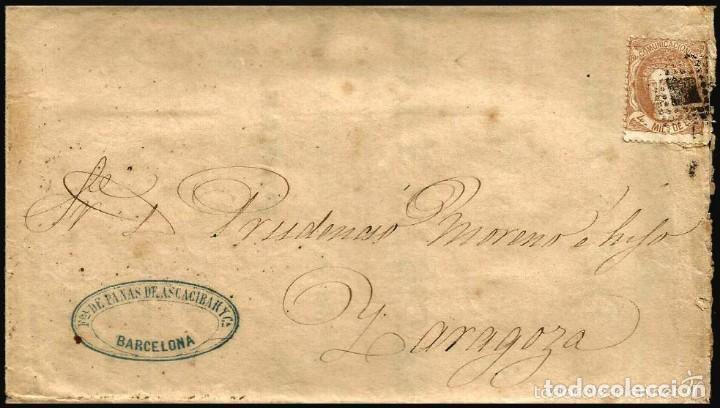 COMUNICACIONES
4 MILS DE E
Sres
D. Prudencio Moreno é hijo
Zaragoza
Fca. DE PANAS DE ASCACIBAR Y Ca.
BARCELONA
todocoleccion